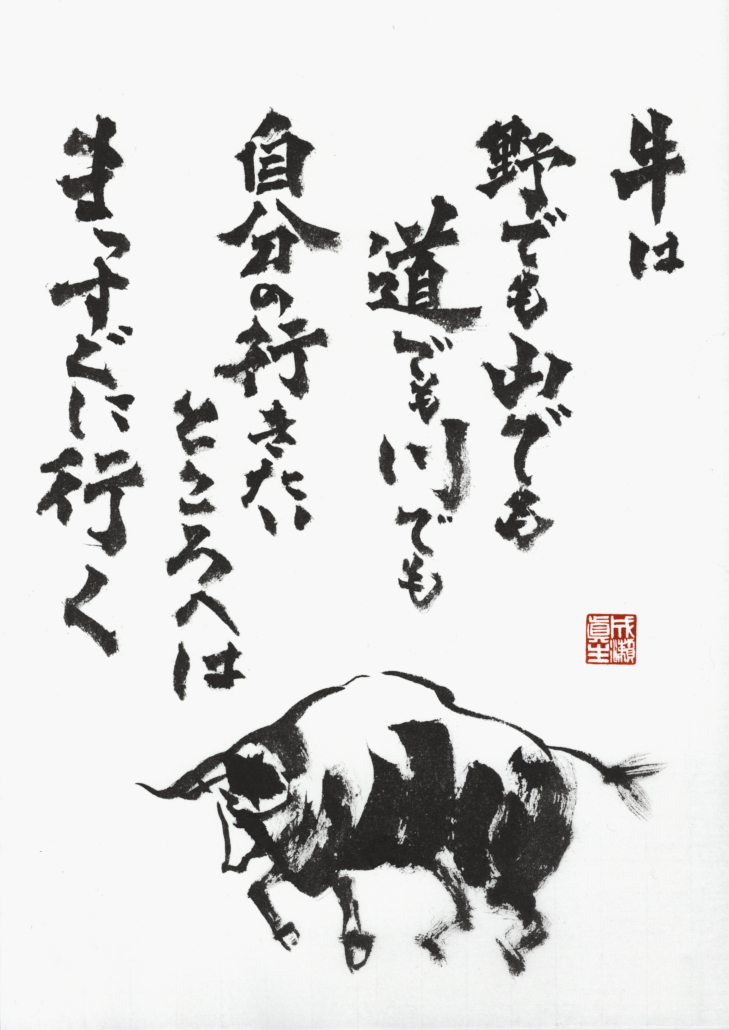 牛は
野でも山でも
道でも川でも
自分の行きたい
ところへは
まっすぐに行く
成瀬
眞生